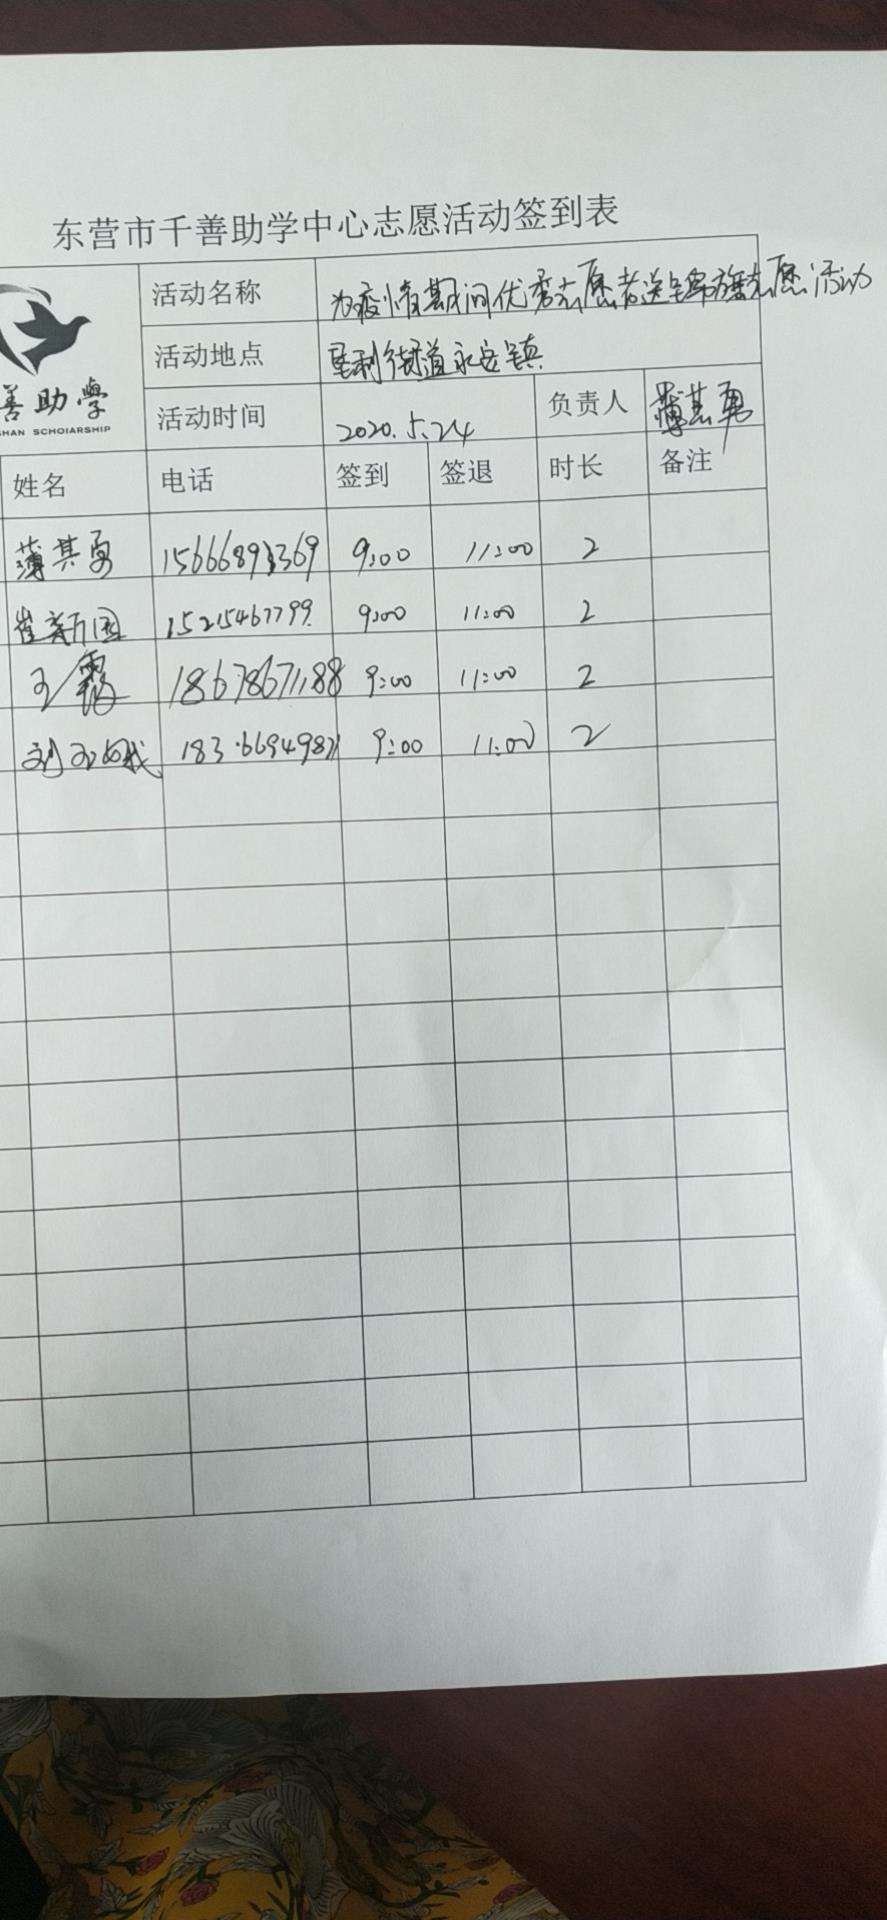 东营市千善助学中心志愿活动签到表
活动名称 为疫情期间优秀志愿者送锦旗志愿活动
善助學
HAN SCHOIARSHIP
活动地点 垦利街道永安镇
活动时间 2020.5.24 负责人 薄其勇
姓名 电话 签到 签退 时长 备注
薄其勇 15666893369 9:00 11:00 2
崔新国 15215467799 9:00 11:00 2
王霞 18678671188 9:00 11:00 2
刘 9:00 11:00 2